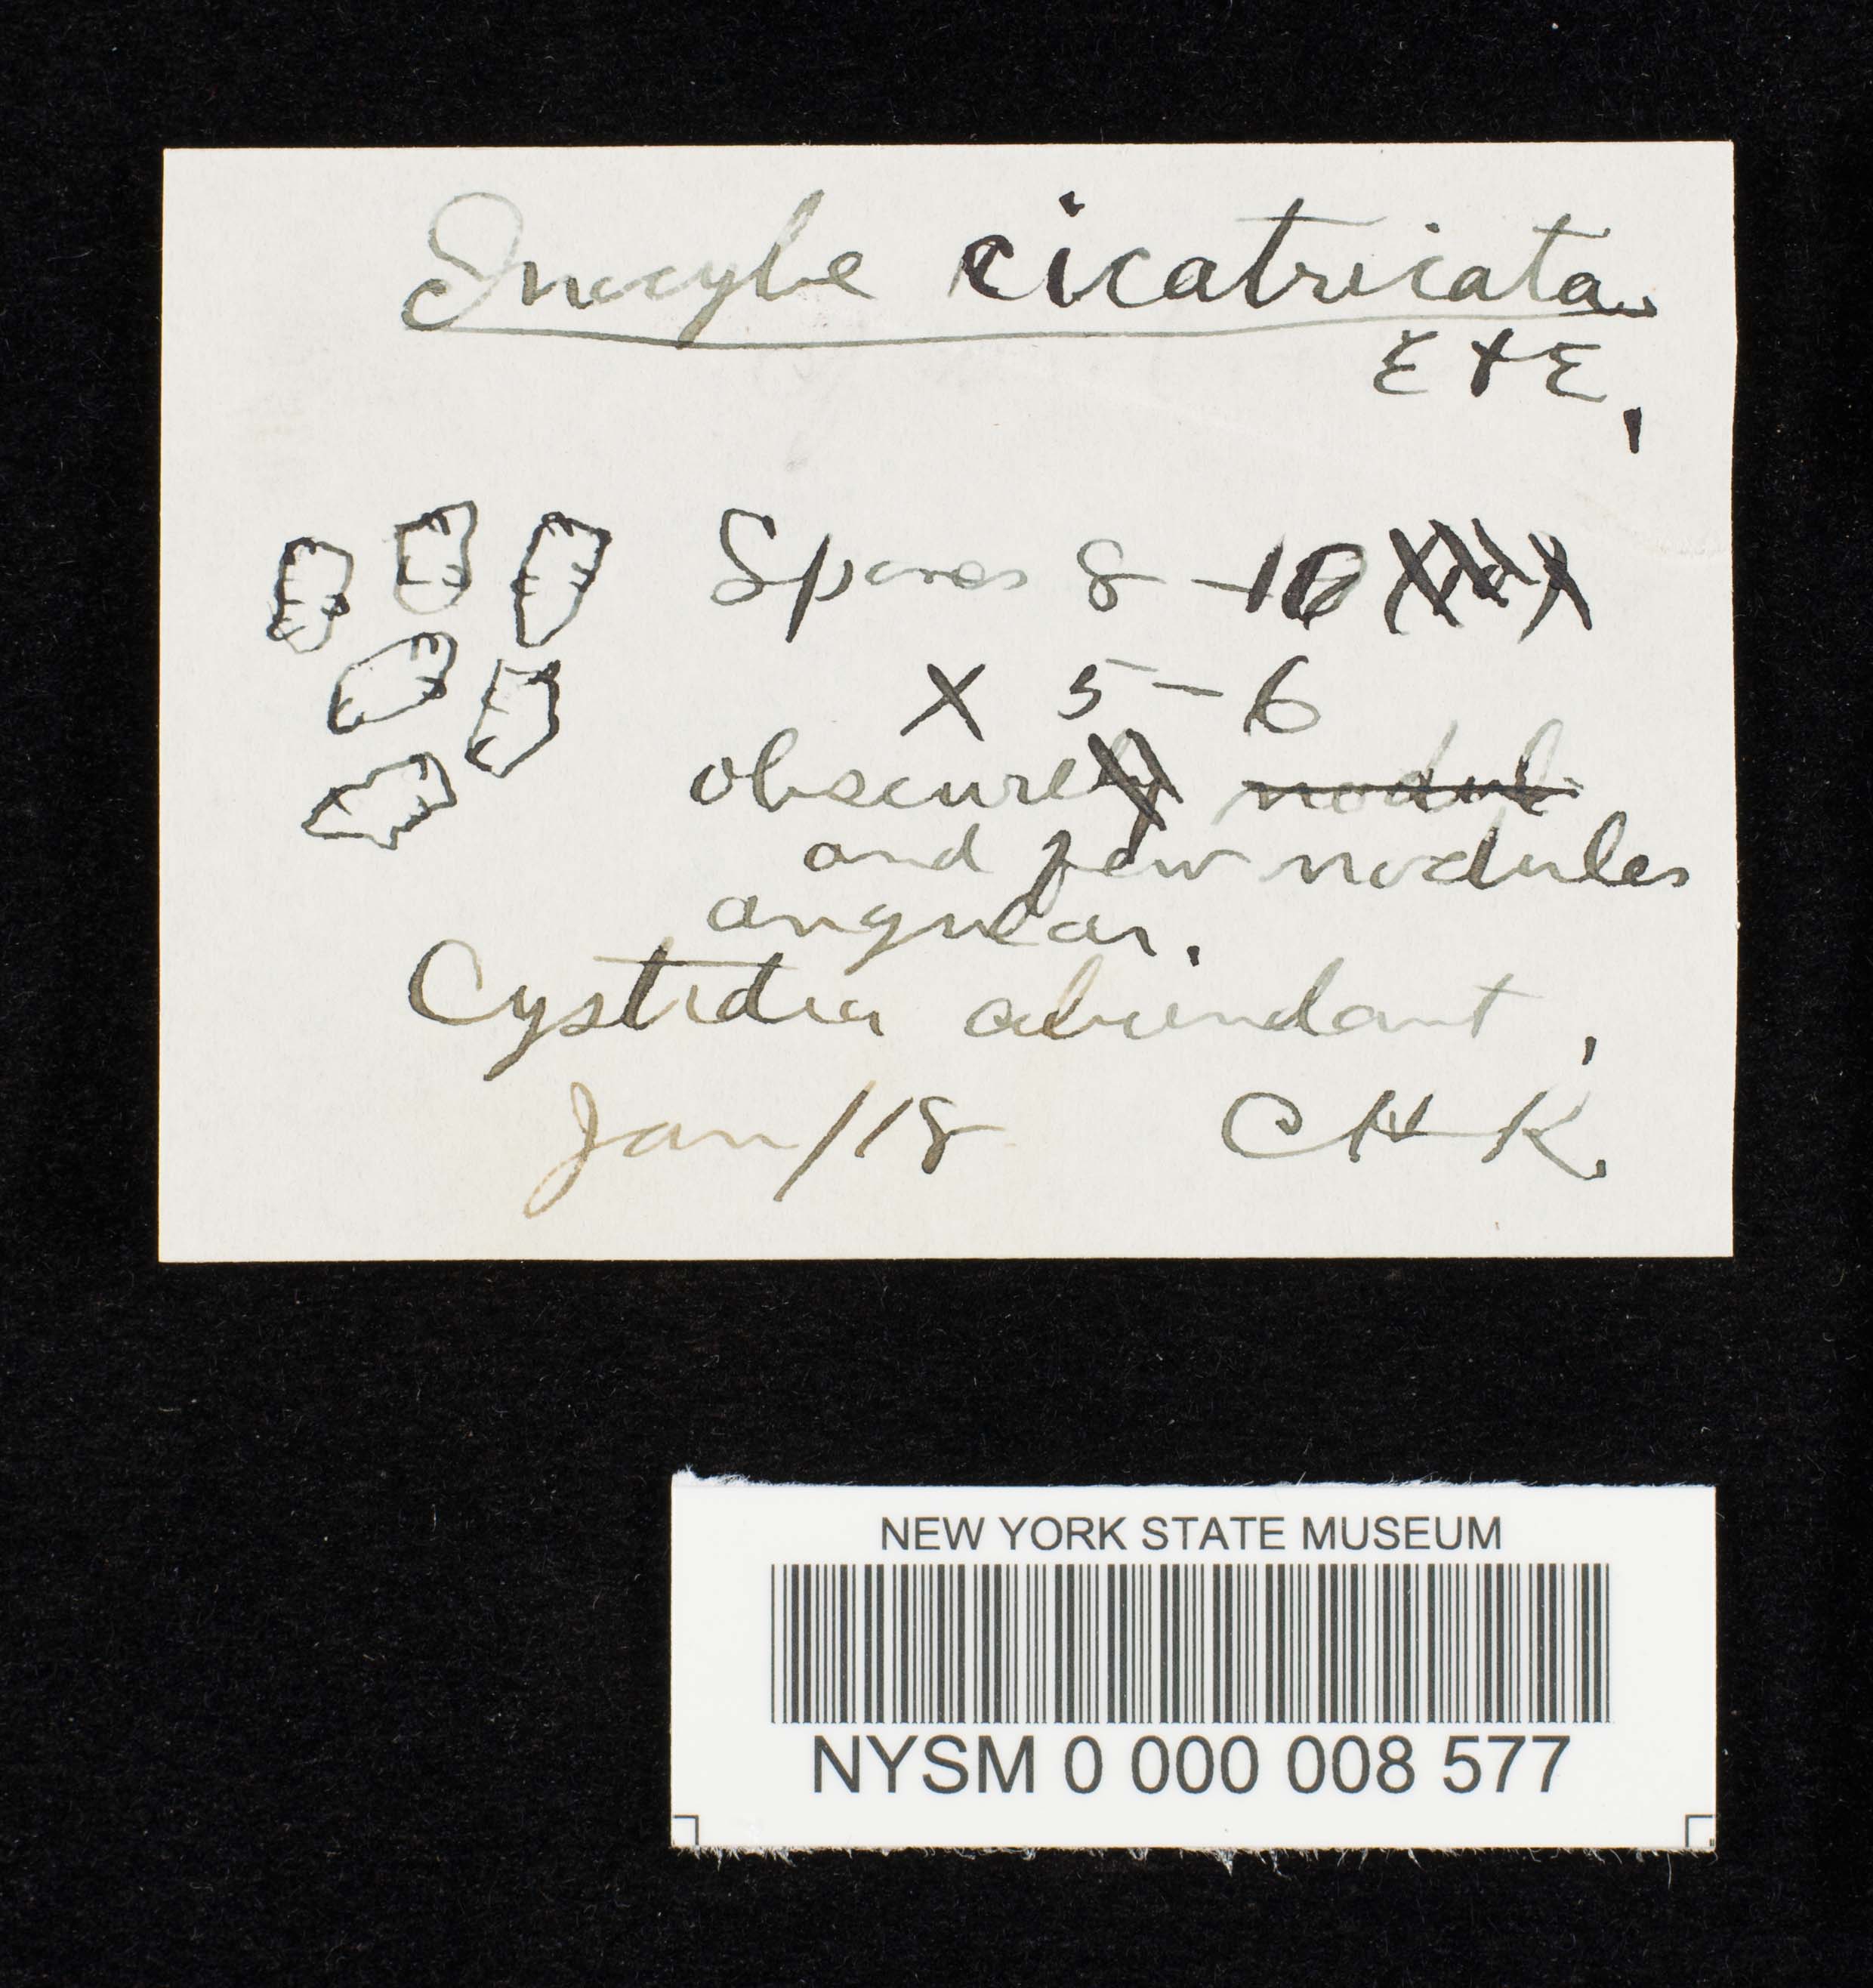 Inocybe cicatricata
E + E.
Spores 8-10
X 5-6
obscure
and few nodules
angular.
Cystidia abundant.
Jan/18 CHK.
NEW YORK STATE MUSEUM
NYSM 0 000 008 577